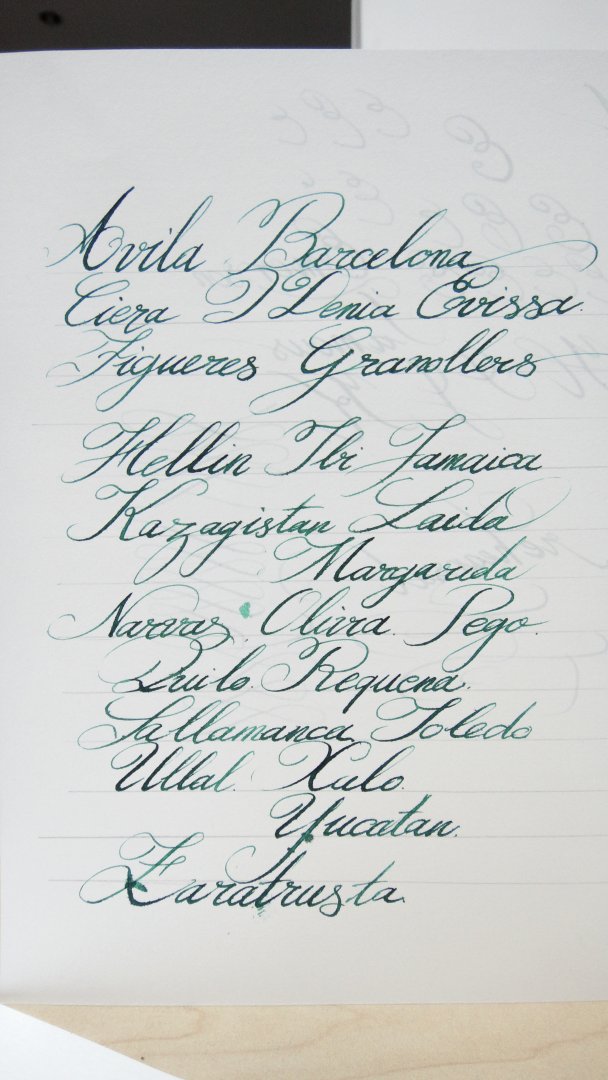 Avila Barcelona
Ciera D Denia Evissa.
Figueres Granollers
Hellin Ibi Jamaica
Kazagistan Laida
Margarida
Olivra. Pego.
Quilo. Requena.
Sallamanca Toledo
Ullal. Xulo.
Yucatan.
Zaratrusta.